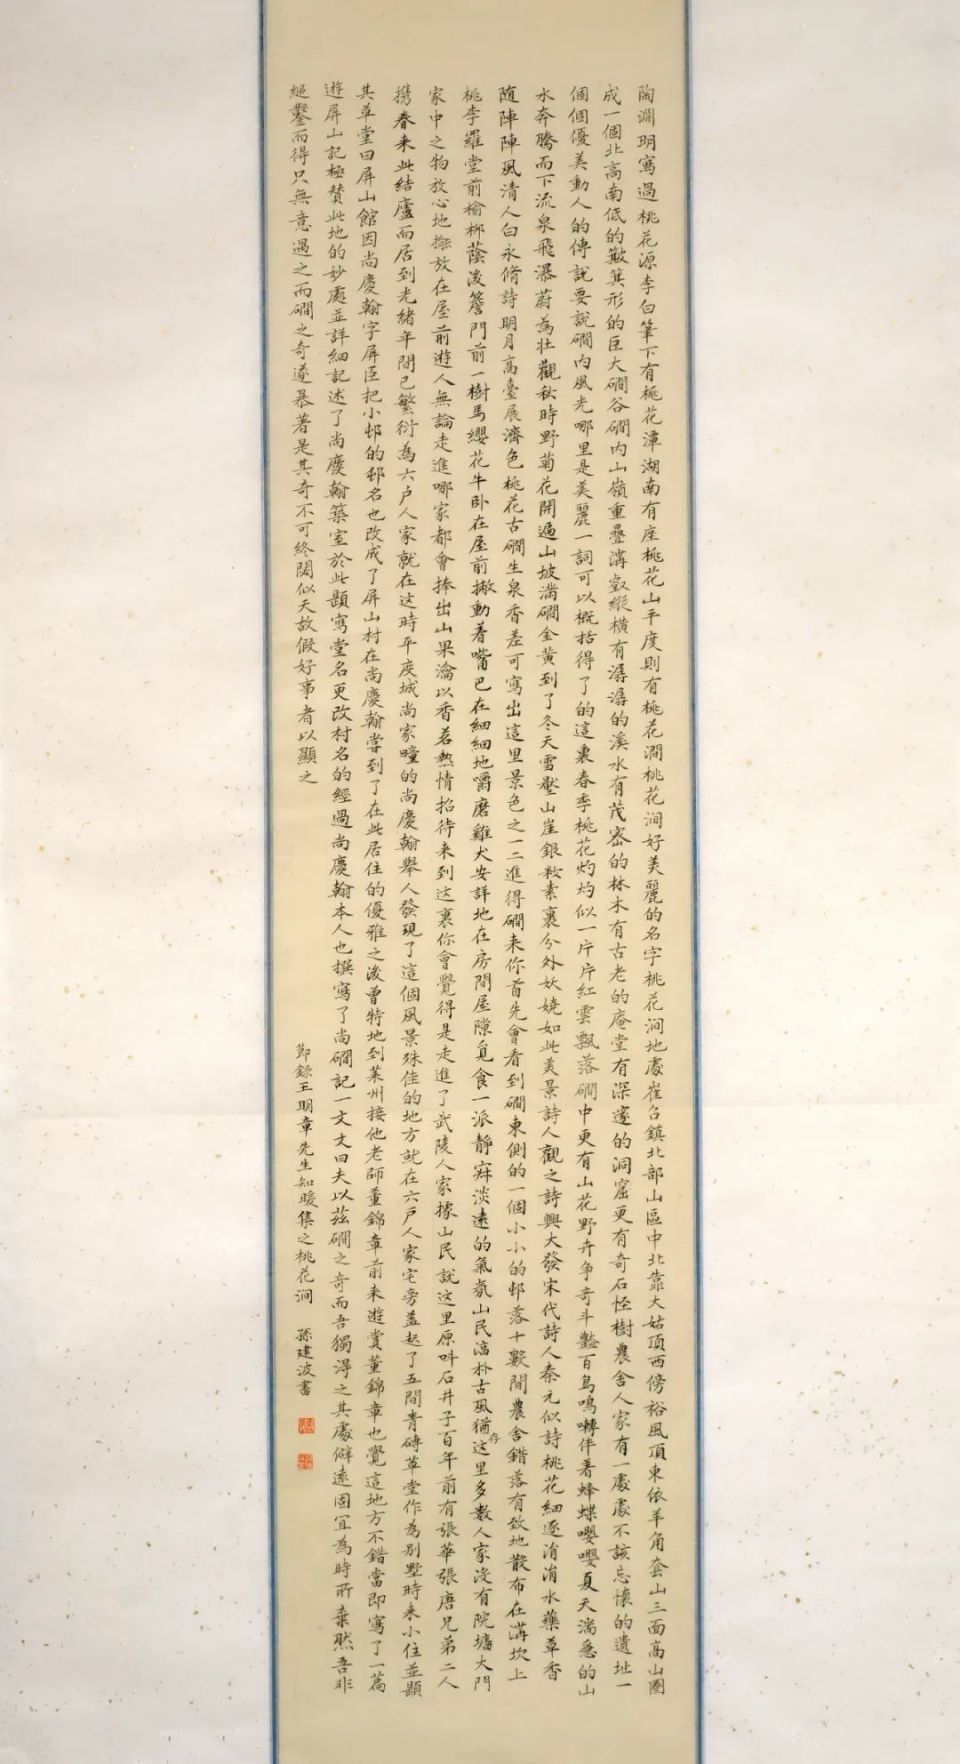 陶淵明寫過桃花源李白筆下有桃花潭湖南有座桃花山平度則有桃花澗桃花澗好美麗的名字桃花澗地處崔召鎮北部山區中北靠大姑頂西傍裕風頂東依羊角套山三面高山圈
成一個北高南低的簸箕形的巨大磵谷磵內山嶺重疊溝壑縱橫有潺潺的溪水有茂密的林木有古老的庵堂有深邃的洞窟更有奇石怪樹農舍人家有一處處不該忘懷的遺址一
個個優美動人的傳說要說磵內風光哪里是美麗一詞可以概括得了的這裏春季桃花灼灼似一片片紅雲飄落磵中更有山花野卉争奇斗豔百鳥鳴囀伴著蜂蝶嚶嚶夏天湍急的山
水奔騰而下流泉飛瀑蔚為壯觀秋時野菊花開遍山坡滿磵金黃到了冬天雪壓山崖銀妝素裹分外妖嬈如此美景詩人觀之詩興大發宋代詩人秦元似詩桃花細逐涓涓水藥草香
随陣陣風清人白永脩詩明月高臺展濟色桃花古磵生泉香差可寫出這里景色之一二進得磵来你首先會看到磵東側的一個小小的邨落十數間農舍錯落有致地散布在溝坎上
桃李羅堂前榆柳蔭後簷門前一樹馬纓花牛卧在屋前掀動着嘴巴在細細地嚼磨雞犬安詳地在房間屋隙覓食一派靜寂淡遠的氣氛山民淳朴古風猶存这里多數人家沒有院墻大門
家中之物放心地擺放在屋前遊人無論走進哪家都會捧出山果瀹以香茗熱情招待来到这裏你會覺得是走進了武陵人家據山民說这里原叫石井子百年前有張華張唐兄弟二人
携眷来此結廬而居到光緒年間已繁衍為六户人家就在这時平度城尚家疃的尚慶翰舉人發現了這個風景殊佳的地方就在六戸人家宅旁蓋起了五間青磚草堂作為别墅時来小住並題
其草堂曰屏山館因尚慶翰字屏臣把小邨的邨名也改成了屏山村在尚慶翰嘗到了在此居住的優雅之後曾特地到莱州接他老師董錦章前来遊賞董錦章也覺這地方不錯當即寫了一篇
遊屏山記極赞此地的妙處並詳細記述了尚慶翰築室於此題寫堂名更改村名的經過尚慶翰本人也撰寫了尚磵記一文文曰夫以茲磵之奇而吾獨得之其處僻遠固宜為時所棄然吾非
縋鑿而得只無意遇之而磵之奇遂暴著是其奇不可終閟似天故假好事者以顯之
節錄王明章先生知暖集之桃花澗 孫建波書